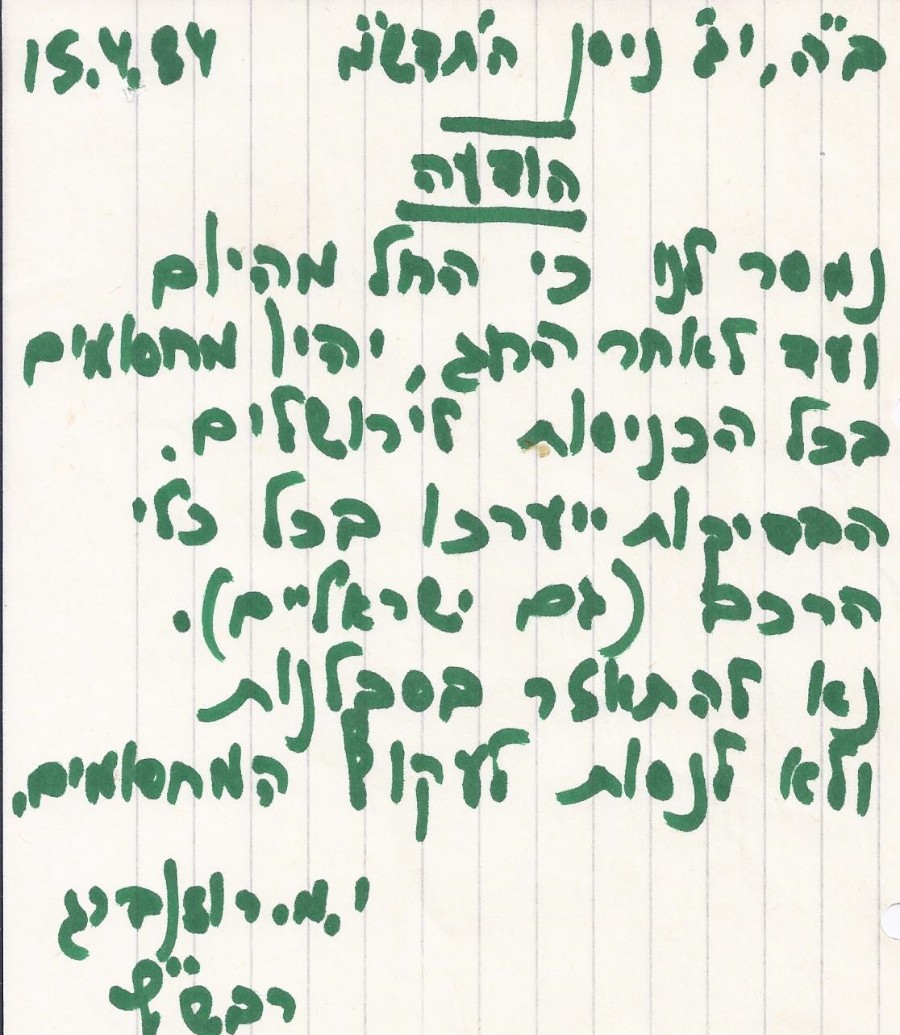 ב"ה, י"ג ניסן ה'תדש"מ 15.4.84
הודעה
נמסר לנו כי החל מהיום
ועד לאחר החג, יהיו מחסומים
בכל הכניסות לירושלים.
הבדיקות ייערכו בכל כלי
הרכב (גם ישראליים).
נא להתאזר בסבלנות
ולא לנסות לעקוף המחסומים.
י.מ.
רבש"ץ